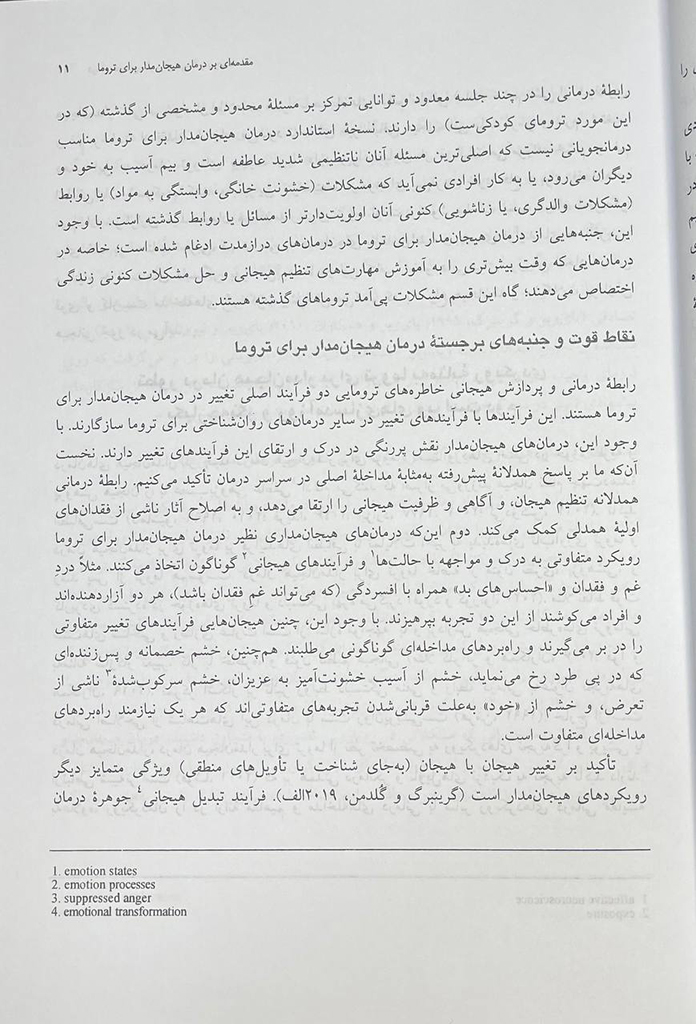 مقدمه‌ای بر درمان هیجان‌مدار برای تروما ۱۱
رابطهٔ درمانی را در چند جلسه معدود و توانایی تمرکز بر مسئلهٔ محدود و مشخصی از گذشته (که در
این مورد ترومای کودکی‌ست) را دارند. نسخهٔ استاندارد درمان هیجان‌مدار برای تروما مناسب
درمانجویانی نیست که اصلی‌ترین مسئله آنان ناتنظیمی شدید عاطفه است و بیم آسیب به خود و
دیگران می‌رود، یا به کار افرادی نمی‌آید که مشکلات (خشونت خانگی، وابستگی به مواد) یا روابط
(مشکلات والدگری، یا زناشویی) کنونی آنان اولویت‌دارتر از مسائل یا روابط گذشته است. با وجود
این، جنبه‌هایی از درمان هیجان‌مدار برای تروما در درمان‌های درازمدت ادغام شده است؛ خاصه در
درمان‌هایی که وقت بیش‌تری را به آموزش مهارت‌های تنظیم هیجانی و حل مشکلات کنونی زندگی
اختصاص می‌دهند؛ گاه این قسم مشکلات پی‌آمد تروماهای گذشته هستند.
نقاط قوت و جنبه‌های برجستهٔ درمان هیجان‌مدار برای تروما
رابطهٔ درمانی و پردازش هیجانی خاطره‌های ترومایی دو فرآیند اصلی تغییر در درمان هیجان‌مدار برای
تروما هستند. این فرآیندها با فرآیندهای تغییر در سایر درمان‌های روان‌شناختی برای تروما سازگارند. با
وجود این، درمان‌های هیجان‌مدار نقش پررنگی در درک و ارتقای این فرآیندهای تغییر دارند. نخست
آن‌که ما بر پاسخ همدلانهٔ پیش‌رفته به‌مثابهٔ مداخلهٔ اصلی در سراسر درمان تأکید می‌کنیم. رابطهٔ درمانی
همدلانه تنظیم هیجان، و آگاهی و ظرفیت هیجانی را ارتقا می‌دهد، و به اصلاح آثار ناشی از فقدان‌های
اولیهٔ همدلی کمک می‌کند. دوم این‌که درمان‌های هیجان‌مداری نظیر درمان هیجان‌مدار برای تروما
رویکرد متفاوتی به درک و مواجهه با حالت‌ها۱ و فرآیندهای هیجانی۲ گوناگون اتخاذ می‌کنند. مثلاً دردِ
غم و فقدان و «احساس‌های بد» همراه با افسردگی (که می‌تواند غمِ فقدان باشد)، هر دو آزاردهنده‌اند
و افراد می‌کوشند از این دو تجربه بپرهیزند. با وجود این، چنین هیجان‌هایی فرآیندهای تغییر متفاوتی
را در بر می‌گیرند و راه‌بردهای مداخله‌ای گوناگونی می‌طلبند. هم‌چنین، خشم خصمانه و پس‌زننده‌ای
که در پی طرد رخ می‌نماید، خشم از آسیب خشونت‌آمیز به عزیزان، خشم سرکوب‌شدهٔ۳ ناشی از
تعرض، و خشم از «خود» به‌علت قربانی‌شدن تجربه‌های متفاوتی‌اند که هر یک نیازمند راه‌بردهای
مداخله‌ای متفاوت است.
تأکید بر تغییر هیجان با هیجان (به‌جای شناخت یا تأویل‌های منطقی) ویژگی متمایز دیگر
رویکردهای هیجان‌مدار است (گرینبرگ و گُلدمن، ۲۰۱۹الف). فرآیند تبدیل هیجانی۴ جوهرهٔ درمان
1. emotion states
2. emotion processes
3. suppressed anger
4. emotional transformation